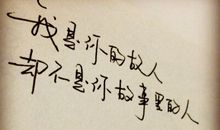 我是你的故人
却不是你故事里的人